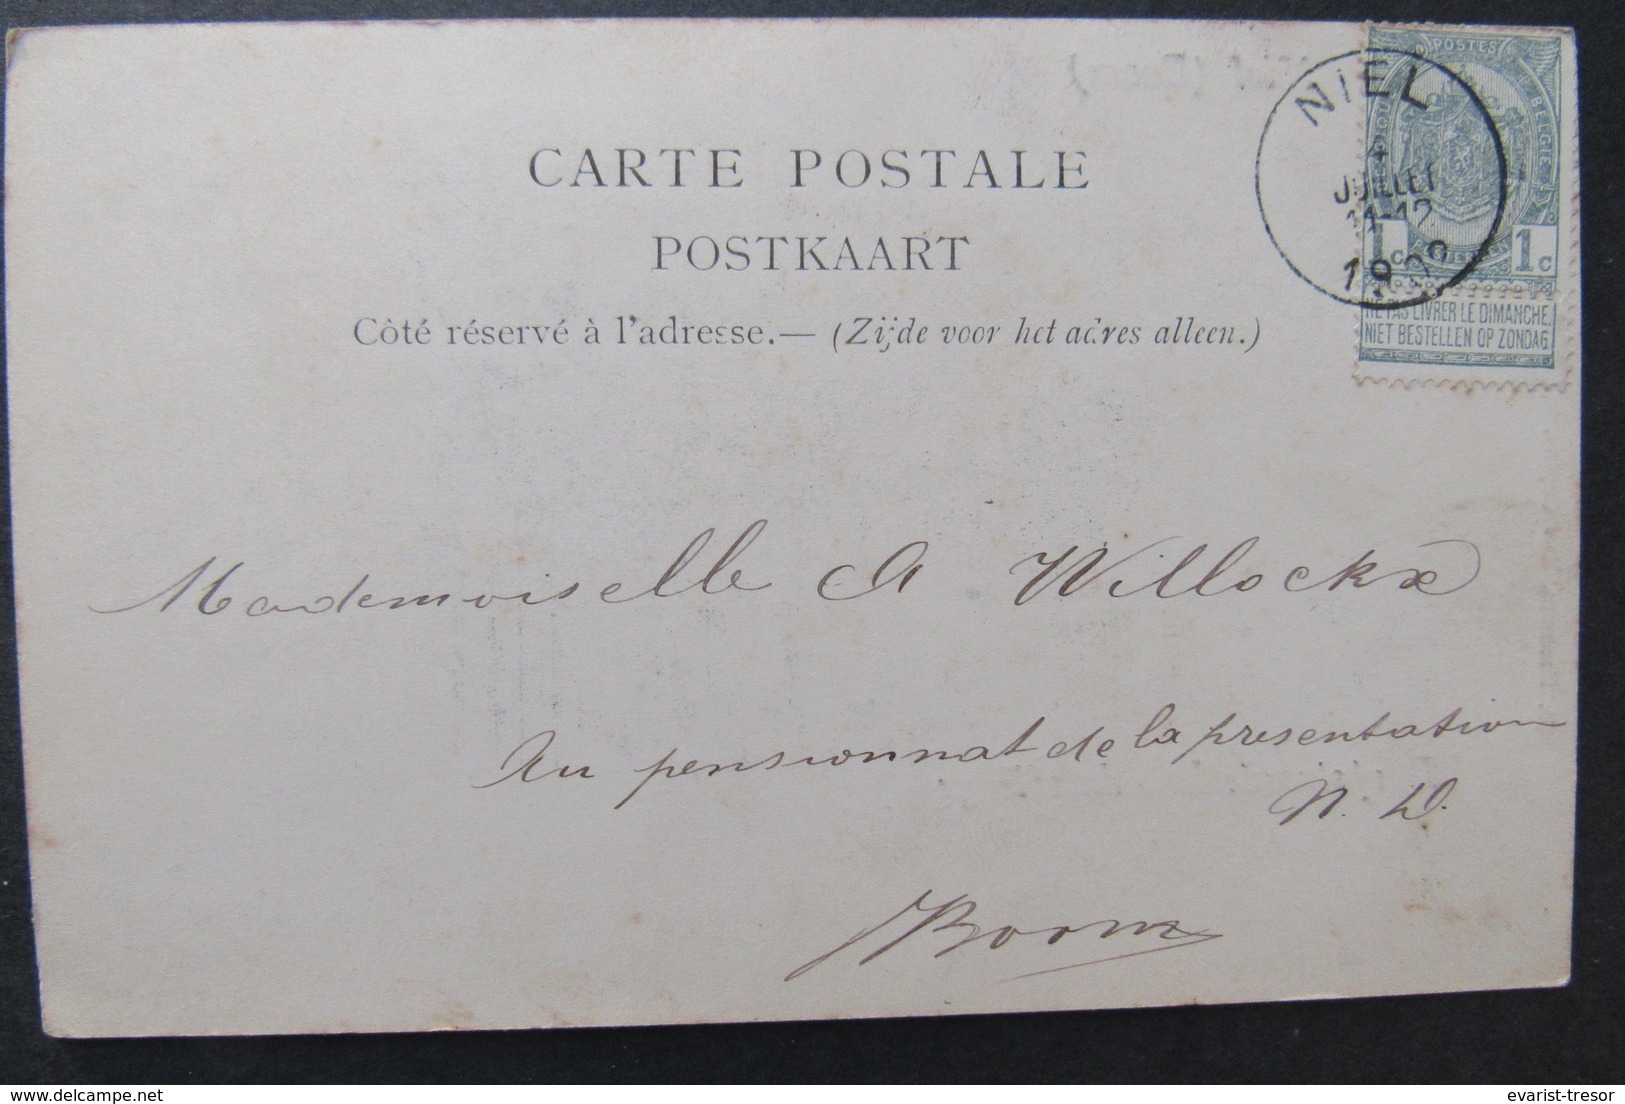 CARTE POSTALE
POSTKAART
Côté réservé à l'adresse.— (Zijde voor het adres alleen.)
NIEL
4
JUILLET
11-12
POSTES
BELGIE
1c 1c
NE PAS LIVRER LE DIMANCHE.
NIET BESTELLEN OP ZONDAG.
Mademoiselle A Willockx
Au pensionnat de la presentation
N. D.
Boom
evarist-tresor